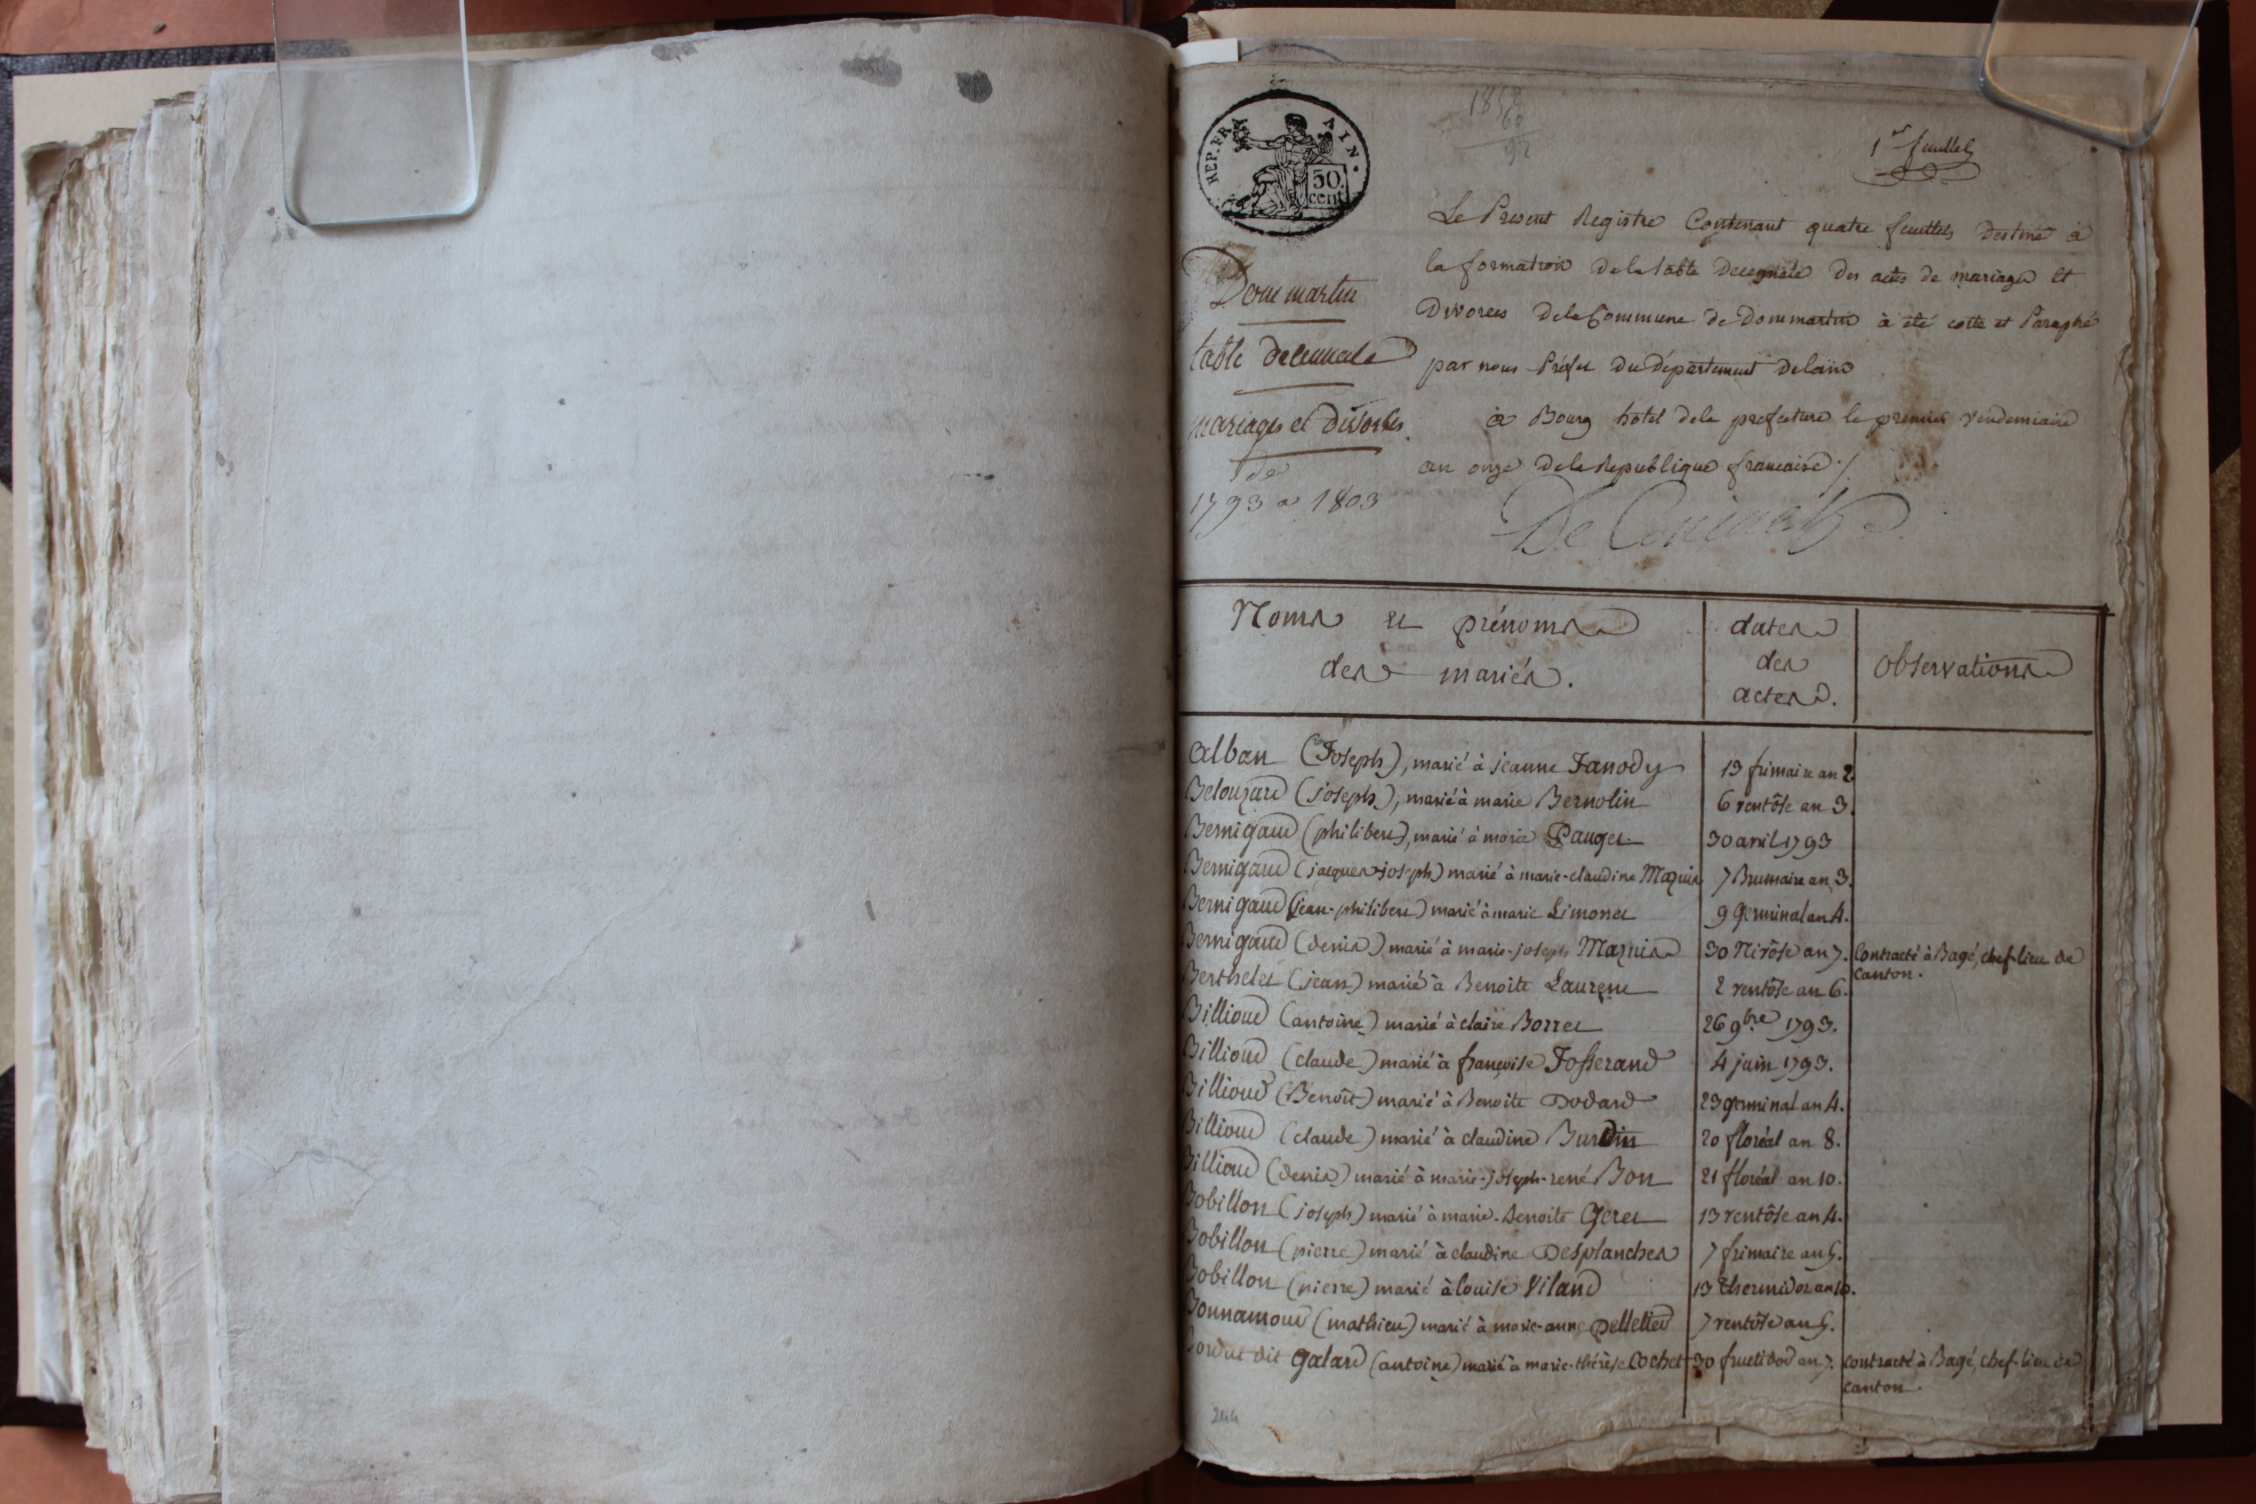 REP. FRA AIN.
50. cent
1er feuillet
Le Present Registre Contenant quatre feuillets Destiné à
la formation dela table Decennale Des actes de mariage et
Divorces dela Commune de Dommartin à été cotté et Paraphé
par nous Préfet Du Département Delain
à Bourg hotel dela prefecture le premier vendemiaire
an onze Dela Republique francaise ./.
Dommartin
table decennale
mariages et divorces
de
1793 a 1803
Noms et prénoms
des mariés.
dates
des
actes.
observations
Alban (Joseph), marié à jeanne Janody 19 frimaire an 2.
Belouzard (joseph), marié à marie Bernolin 6 ventôse an 3.
Bernigaud (philibert), marié à marie Pauget 30 avril 1793
Bernigaud (jacques joseph) marié à marie-claudine Mazuir 7 Brumaire an 3.
Bernigaud (jean-philibert) marié à marie Limonet 9 Germinal an 4.
Bernigaud (denis) marié à marie-joseph Mazuir 30 Nivôse an 7. Contracté à Bagé, chef-lieu de
canton.
Berthelet (jean) marié à Benoite Laurent 2 ventôse an 6.
Billioud (antoine) marié à claire Borret 26 9bre 1793.
Billioud (claude) marié à françoise Josserand 4 juin 1793.
Billioud (Benoît) marié à Benoite Dodard 23 germinal an 4.
Billioud (claude) marié à claudine Burdin 20 floréal an 8.
Billioud (denis) marié à marie-joseph-rené Bon 21 floréal an 10.
Bobillon (joseph) marié à marie-Benoite Geret 13 ventôse an 4.
Bobillon (pierre) marié à claudine Desplanches 7 frimaire an 5.
Bobillon (pierre) marié à louise Viland 13 thermidor an 10.
Bonnamour (mathieu) marié à marie-anne pelletier 7 ventôse an 5.
dit galard (antoine) marié à marie-thérèse Cochet 30 fructidor an 7. contracté à Bagé, chef-lieu de
canton.
244